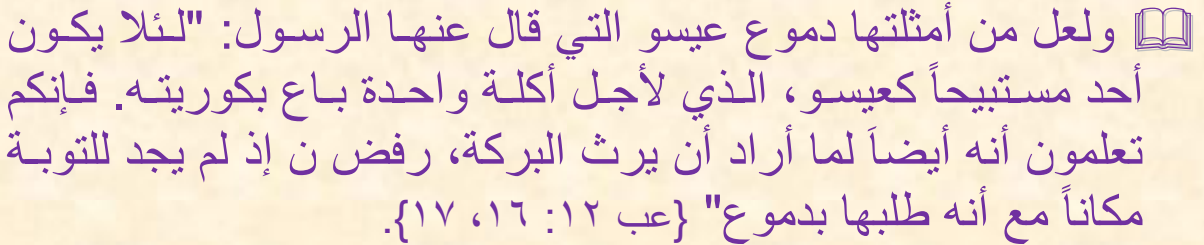 🕮 ولعل من أمثلتها دموع عيسو التي قال عنها الرسول: "لئلا يكون
أحد مستبيحاً كعيسو، الذي لأجل أكلة واحدة باع بكوريته. فإنكم
تعلمون أنه أيضاَ لما أراد أن يرث البركة، رفض ن إذ لم يجد للتوبة
مكاناً مع أنه طلبها بدموع" {عب ١٢: ١٦، ١٧}.